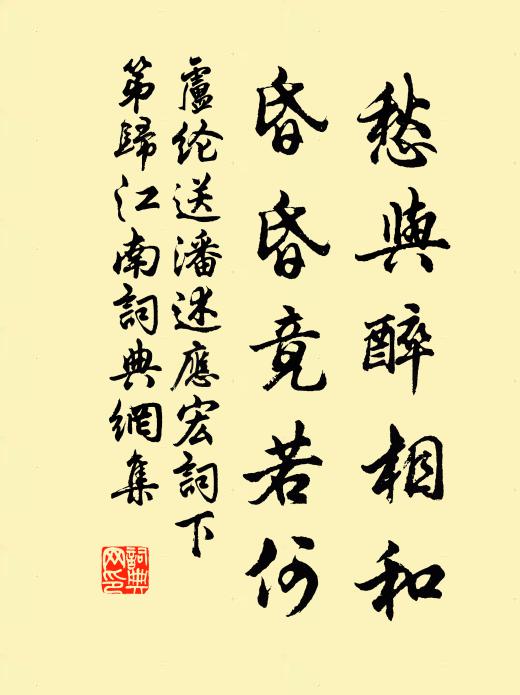 愁與醉相和
昏昏竟若何
盧纶送潘述應宏詞下
第歸江南詞典網集
詞典
网印